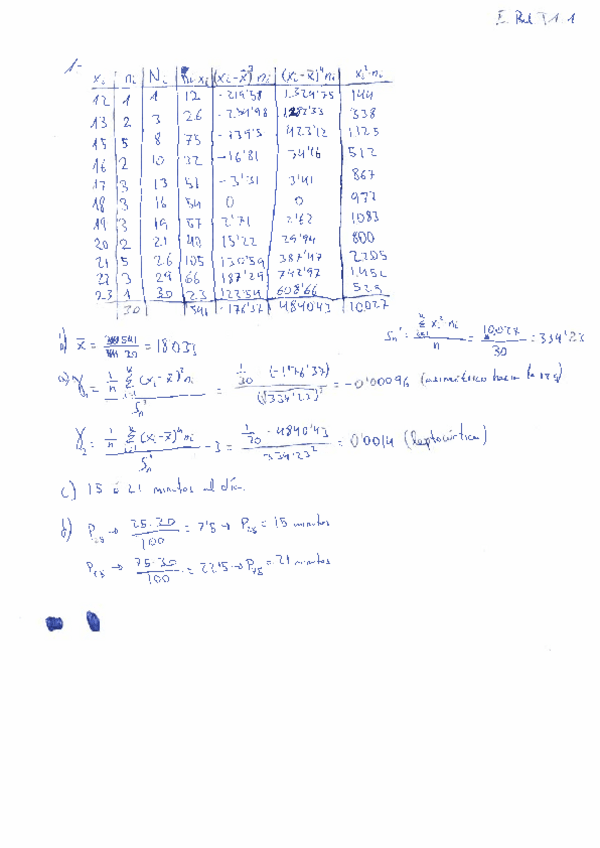 E. Prel T1.1
1.-
xi ni Ni ni xi (xi-x̄)³ni (xi-x̄)⁴ni xi²ni
12 1 1 12 -219'58 1.324'75 144
13 2 3 26 338
15 5 8 75 -139'5 423'12 1125
16 2 10 32 -16'81 34'16 512
17 3 13 51 -3'31 3'41 867
18 3 16 54 0 0 972
19 3 19 57 2'71 2'62 1083
20 2 21 40 15'22 29'94 800
21 5 26 105 130'59 387'47 2205
22 3 29 66 187'29 742'97 1.452
23 1 30 23 122'54 608'66 529
30 541 -176'37 4840'43 10027
x̄ = 541/30 = 18'033
Sn² = Σ xi²·ni / n = 10.027/30 = 334'23
a) γ1 = 1/n Σ (xi-x̄)³ni / Sn³ = 1/30 (-176'37) / (√334'23)³ = -0'00096 (asimétrica hacia la izq)
γ2 = 1/n Σ (xi-x̄)⁴ni / Sn⁴ - 3 = 1/30 · 4840'43 / 334'23² = 0'0014 (leptocúrtica)
c) 15 ó 21 minutos al día.
d) P25 → 25·30/100 = 7'5 → P25 = 15 minutos
P75 → 75·30/100 = 22'5 → P75 = 21 minutos